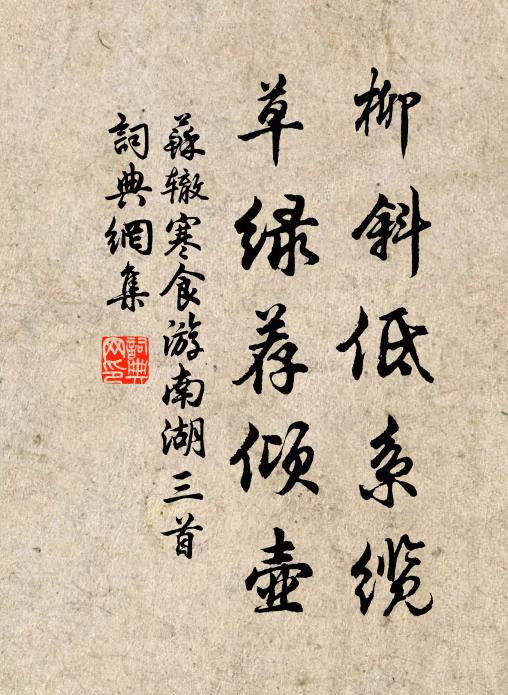 柳斜低系缆
草绿荐倾壶
蘇辙寒食游南湖三首
詞典網集
詞典網印